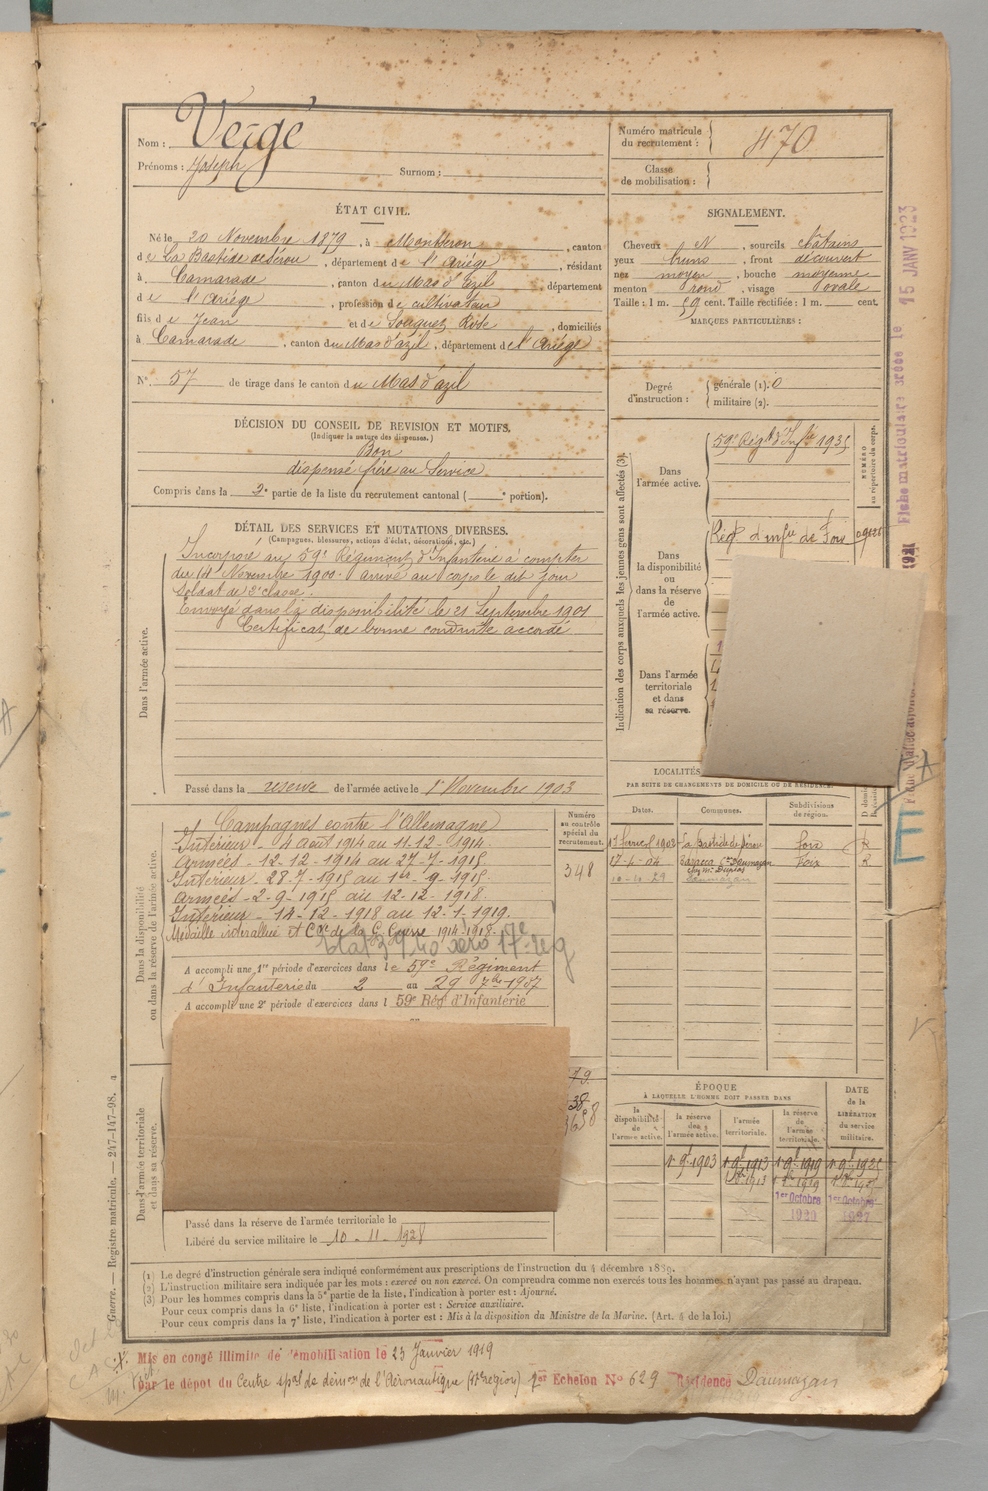 Nom : Vergé
Prénoms : Joseph Surnom :
Numéro matricule du recrutement : 470
Classe de mobilisation :
ÉTAT CIVIL.
Né le 20 Novembre 1879, à Montseron, canton
de La Bastide de Sérou, département de l'Ariège, résidant
à Camarade, canton du Mas d'Azil, département
de l'Ariège, profession de cultivateur
fils de Jean et de Souquet Rose, domiciliés
à Camarade, canton du Mas d'azil, département de l'Ariège
N° 57 de tirage dans le canton du Mas d'azil
SIGNALEMENT.
Cheveux N, sourcils châtains
yeux bruns, front découvert
nez moyen, bouche moyenne
menton rond, visage ovale
Taille : 1 m. 59 cent. Taille rectifiée : 1 m. cent.
MARQUES PARTICULIÈRES :
Degré d'instruction : générale (1). 0
militaire (2).
DÉCISION DU CONSEIL DE REVISION ET MOTIFS.
(Indiquer la nature des dispenses.)
Bon
dispensé frère au Service
Compris dans la 2e partie de la liste du recrutement cantonal ( e portion).
DÉTAIL DES SERVICES ET MUTATIONS DIVERSES.
(Campagnes, blessures, actions d'éclat, décorations, etc.)
Dans l'armée active.
Incorporé au 59e Régiment d'Infanterie à compter
du 14 Novembre 1900. arrivé au corps le dit jour
Soldat de 2e classe.
Envoyé dans la disponibilité le 21 Septembre 1901
Certificat de bonne conduite accordé
Passé dans la réserve de l'armée active le 1er Novembre 1903
Indication des corps auxquels les jeunes gens sont affectés (3).
NUMÉRO au répertoire du corps.
Dans l'armée active.
59e Régt d'Infie
Dans la disponibilité ou dans la réserve de l'armée active.
Régt d'infie de Foix
Dans l'armée territoriale et dans sa réserve.
LOCALITÉS
PAR SUITE DE CHANGEMENTS DE DOMICILE OU DE RÉSIDENCE.
Dates. Communes. Subdivisions de région.
1903 La Bastide de Sérou Foix R
17-4-04 Daumazan Foix R
10-10-29 Daumazan
Dans la disponibilité ou dans la réserve de l'armée active.
Numéro au contrôle spécial du recrutement.
348
Campagnes contre l'Allemagne
Intérieur - 4 août 1914 au 11-12-1914.
Armées - 12-12-1914 au 27-7-1915
Intérieur - 28-7-1915 au 1er-9-1915.
Armées - 2-9-1915 au 12-12-1918.
Intérieur - 14-12-1918 au 12-1-1919.
Médaille interalliée et Cve de la G. Guerre 1914-1918.
A accompli une 1re période d'exercices dans le 59e Régiment
d'Infanterie du 2 au 29 7bre 1907
A accompli une 2e période d'exercices dans l 59e Rég d'Infanterie
Dans l'armée territoriale et dans sa réserve.
Passé dans la réserve de l'armée territoriale le
Libéré du service militaire le 10-11-1928
ÉPOQUE
À LAQUELLE L'HOMME DOIT PASSER DANS
la disponibilité de l'armée active.
la réserve de l'armée active.
l'armée territoriale.
la réserve de l'armée territoriale.
DATE de la LIBÉRATION du service militaire.
1er Octobre 1er Octobre
(1) Le degré d'instruction générale sera indiqué conformément aux prescriptions de l'instruction du 4 décembre 1889.
(2) L'instruction militaire sera indiquée par les mots : exercé ou non exercé. On comprendra comme non exercés tous les hommes n'ayant pas passé au drapeau.
(3) Pour les hommes compris dans la 5e partie de la liste, l'indication à porter est : Ajourné.
Pour ceux compris dans la 6e liste, l'indication à porter est : Service auxiliaire.
Pour ceux compris dans la 7e liste, l'indication à porter est : Mis à la disposition du Ministre de la Marine. (Art. 4 de la loi.)
Guerre. — Registre matricule. — 247-147-98. 4
Mis en congé illimité de démobilisation le 23 Janvier 1919
par le dépôt du Centre spal de démon de l'Aéronautique (17e région) 1er Echelon N° 629 Résidence Daumazan
Fiche matriculaire créée le 15 JANV 1923